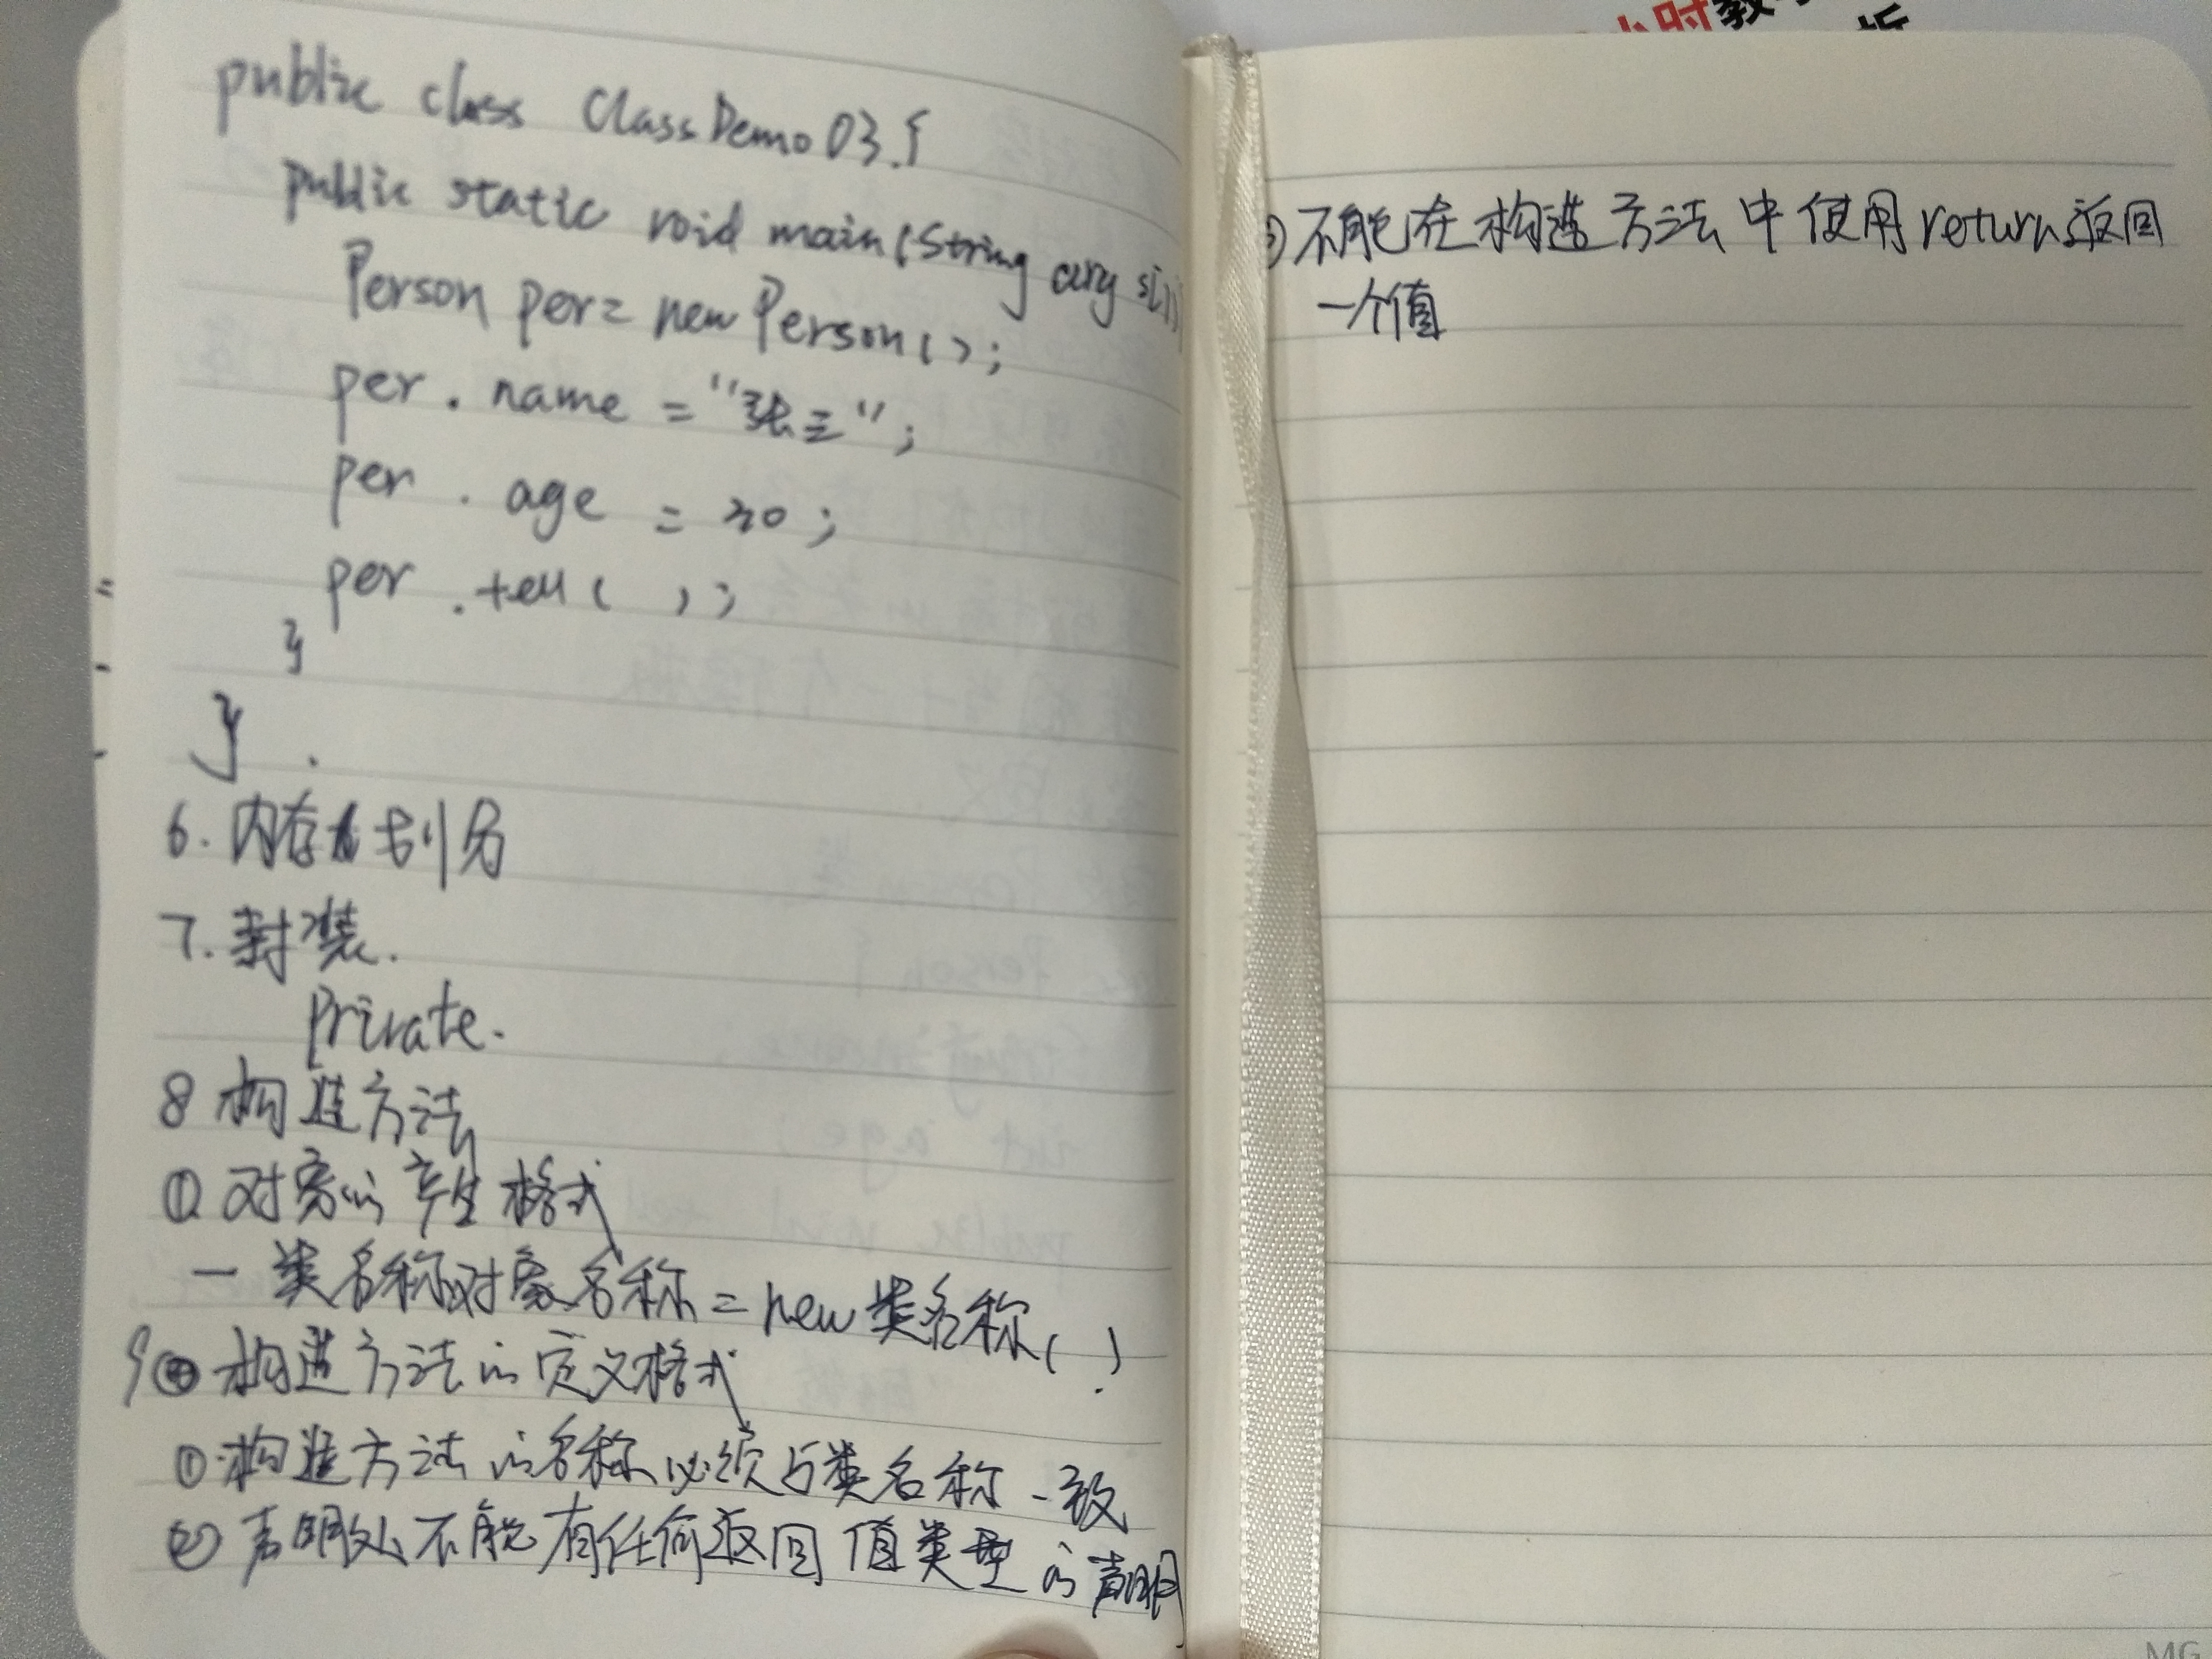 public class ClassDemo03{
public static void main(String args[])
Person per= new Person();
per.name = "张三";
per.age = 30;
per.tell();
}
}
6.内存划分
7.封装.
private.
8 构造方法
① 对象的产生格式
一 类名称对象名称=new类名称()
9 构造方法的定义格式
①构造方法的名称必须与类名称一致
② 声明处不能有任何返回值类型的声明
③不能在构造方法中使用return返回
一个值
小时教
MG